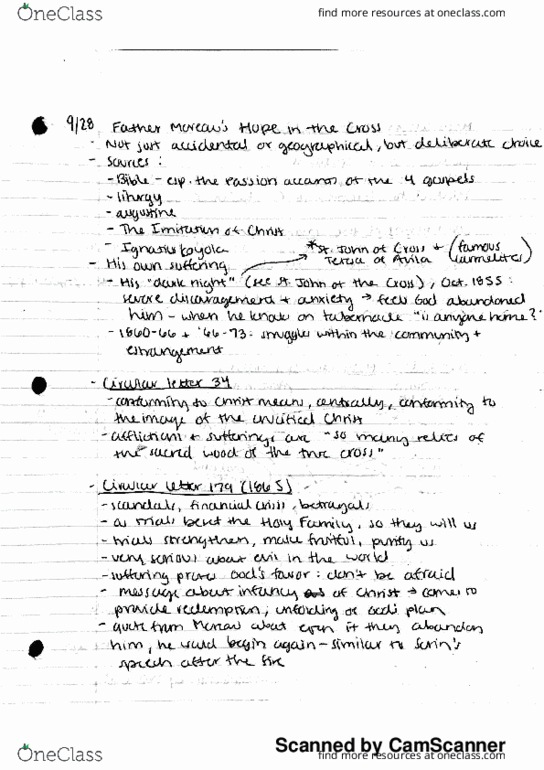 OneClass
find more resources at oneclass.com
9/28 Father Moreau's Hope in the Cross
- Not just accidental or geographical, but deliberate choice
- Sources:
- Bible - esp. the Passion accounts of the 4 gospels
- liturgy
- augustine
- The Imitation of Christ
- Ignatius Loyola
*St. John of Cross + Teresa of Avila (famous carmelites)
- His own suffering
- His "dark night" (see St. John of the Cross), Oct. 1855:
severe discouragement + anxiety → feels God abandoned
him - when he knocks on tabernacle "is anyone home?"
- 1860-66 + '66-73: struggles within the community +
estrangement
- Circular letter 34
- conforming to Christ means, centrally, conformity to
the image of the crucified Christ
- affliction + sufferings are "so many relics of
the sacred wood of the true cross"
- Circular letter 179 (1865)
- scandals, financial crisis, betrayals
- as trials beset the Holy Family, so they will us
- trials strengthen, make fruitful, purify us
- very serious about evil in the world
- suffering proves God's favor: don't be afraid
- message about infancy of Christ → comes to
provide redemption, unfolding of God's plan
- quote from Moreau about even if they abandon
him, he would begin again - similar to Sorin's
speech after the fire
Scanned by CamScanner
OneClass
find more resources at oneclass.com